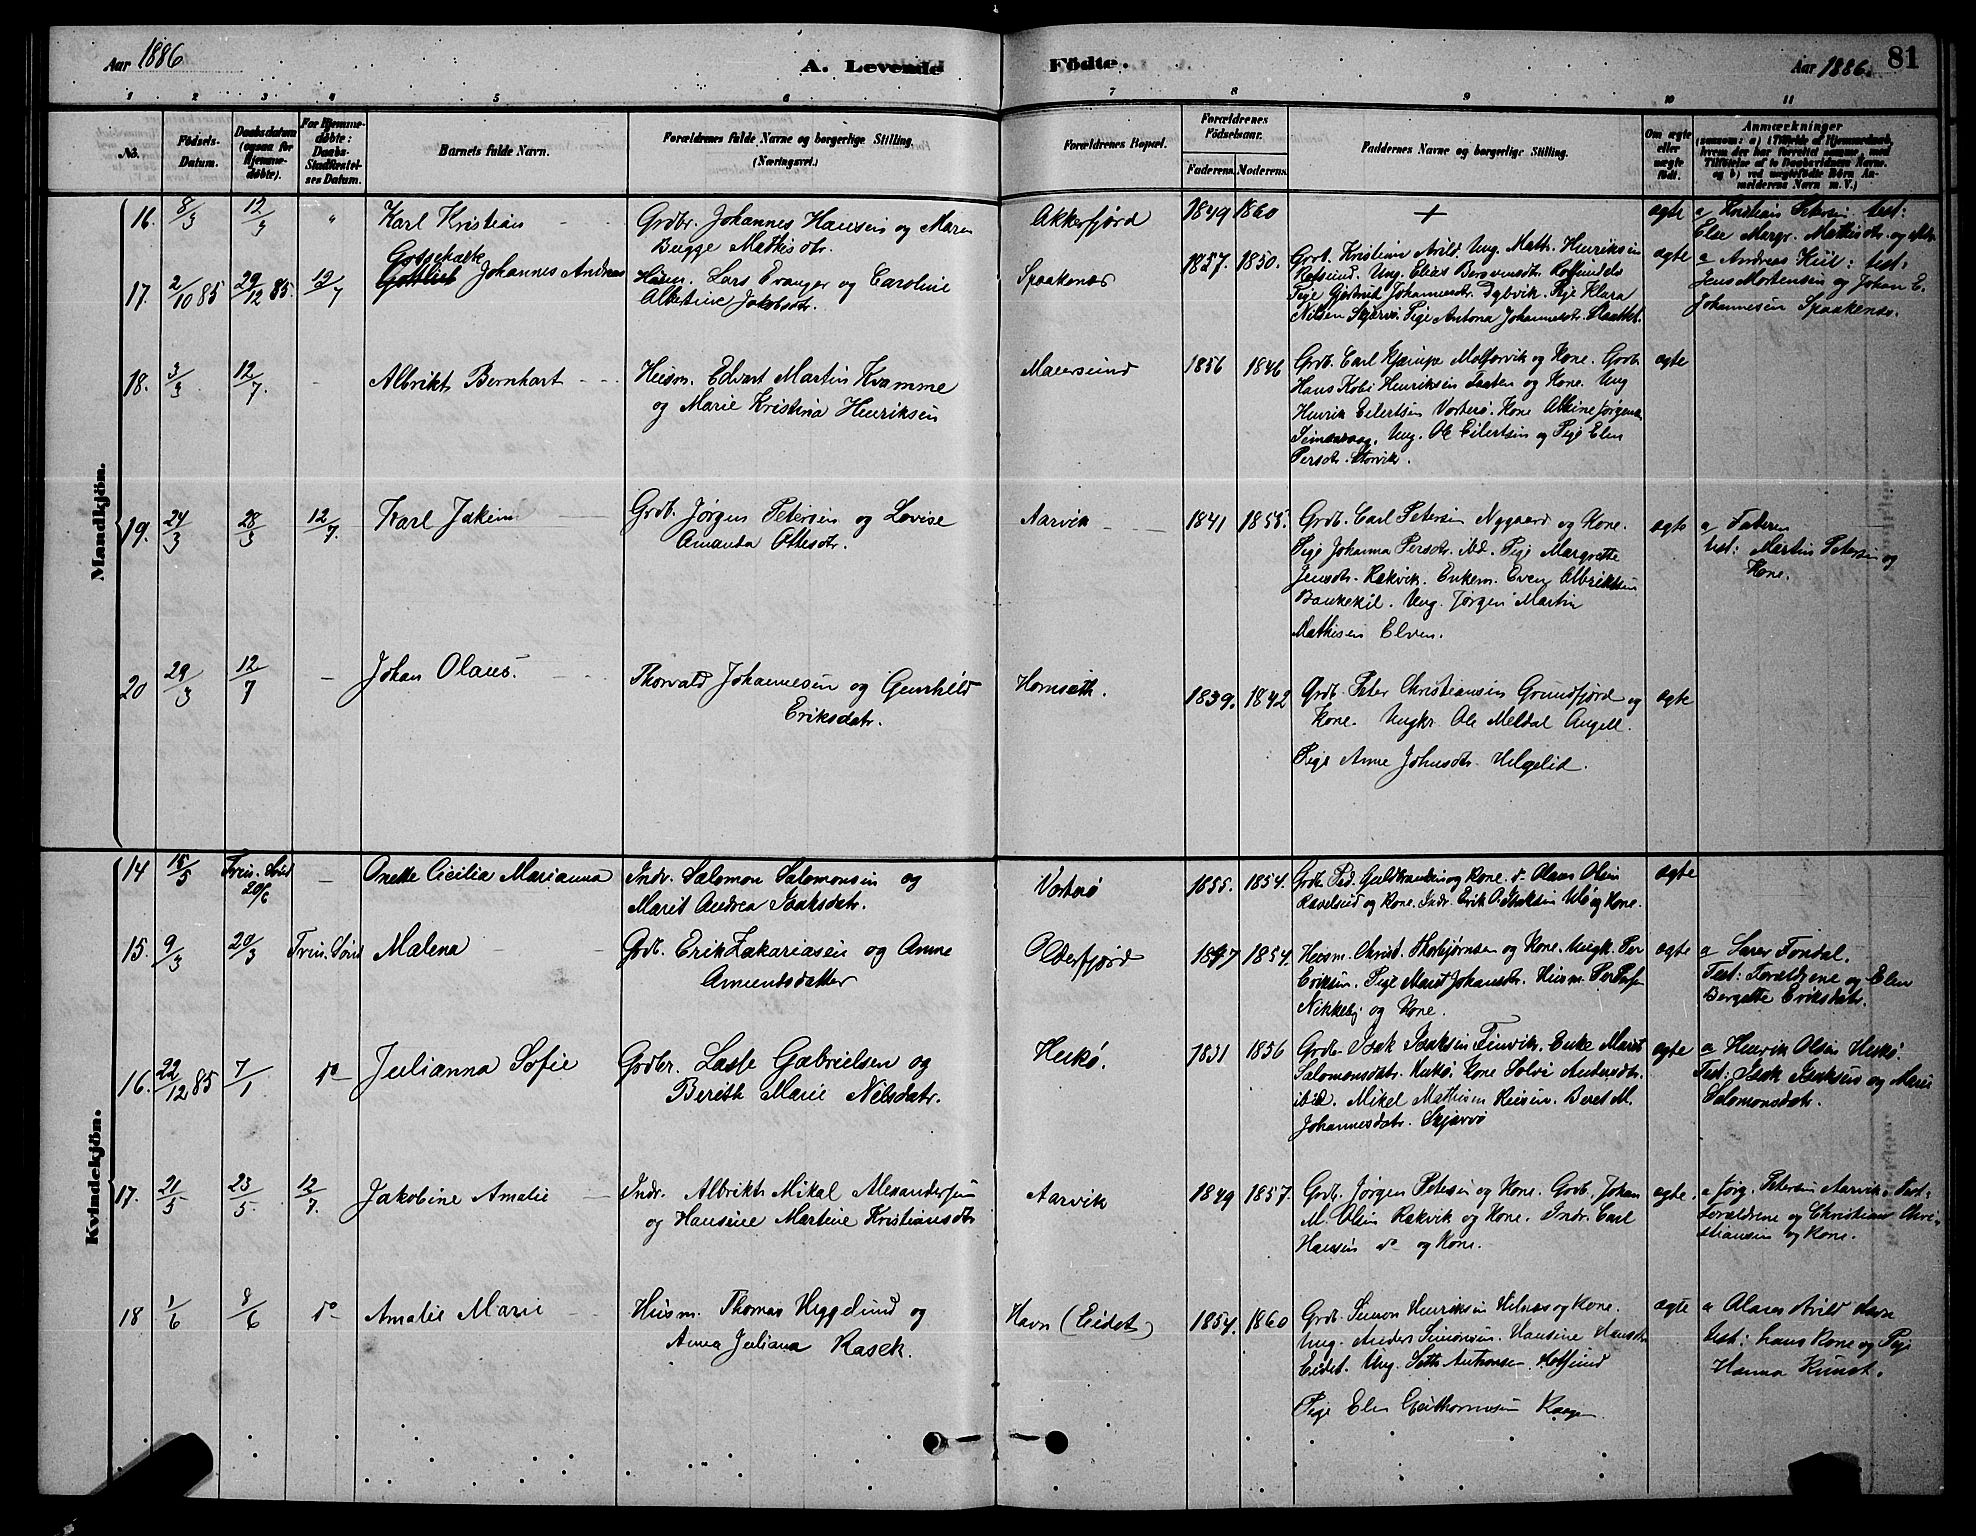 Aar 1886
A. Levende
Födte.
Aar 1886.
81
1 2 3 4 5 6 7 8 9 10 11
No.
Födsels-
Datum.
Daabsdatum
(ogsaa for
Hjemme-
døbte).
For Hjemme-
døbte:
Daabs-
Stadfæstel-
ses Datum.
Barnets fulde Navn.
Forældrenes fulde Navne og borgerlige Stilling.
(Næringsvei.)
Forældrenes Bopæl.
Forældrenes
Födselsaar.
Faderens.
Moderens.
Faddernes Navne og borgerlige Stilling.
Om ægte
eller
uægte
født.
Anmærkninger
Mandkjön.
16. 8/3 12/3 " Karl Kristian
Grdbr. Johannes Hansen og Maren
Bugge Mathisdtr.
Akkerfjord 1849 1860 + ægte
a Kristian Petersen test:
Else Margr. Mathisdtr. og
17. 2/10 85 29/12 85. 12/7
Gottlieb Johannes Andreas
Husm. Lars Evanger og Caroline
Albertine Jakobsdtr.
Spaakenæs 1857. 1850.
Grdb. Kristian Arild. Ung. Math. Henriksen
Pige Gjertrud Johannesdtr. Dybvik. Pige Klara
Nilsen Skjærvø. Pige Antona Johannesdtr.
ægte
a Andreas Kiil: test:
Jens Mortensen og Johan E.
Johannesen Spaakenæs.
18. 3/3 12/7. - Albrikt Bernhart
Husm. Edvart Martin Kvamme
og Marie Kristina Henriksen
Maursund 1856 1846
Grdb. Carl Kjærup og Kone. Grdb.
Hans Henriksen og Kone. Ung
Henrik Eilertsen Vorterø. Kone Albine Jørgens
Ung. Ole Eilertsen og Pige Elen
Persdtr. Storvik.
ægte
19. 24/3 28/3 12/7. Karl Jakim
Grdb. Jørgen Petersen og Lovise
Amanda Ottesdtr.
Aarvik 1841 1855.
Grdb. Carl Petersen Nygaard og Kone.
Pige Johanna Persdtr. ibd. Pige Margrette
Jensdtr. Rakvik. Enkem. Even Albriktsen
Baukekil. Ung. Jørgen Martin
Mathisen Elven.
ægte
a Faderen
test: Martin Petersen og
Kone.
20 29/3 12/7 - Johan Olaus.
Thorvald Johannesen og Gunhild
Eriksdatr.
Hornseth. 1839. 1842
Grdb. Peter Christiansen Grundfjord og
Kone. Ungkr. Ole Meldal Angell.
Pige Anne Johnsdtr. Helgelid.
ægte
Kvindekjön.
14 15/5 Trin. Sønd 20/6 - Anette Cicilia Marianna
Indr. Salomon Salomonsen og
Marit Andrea Isaksdatr.
Vorterø 1855. 1854.
Grdb. Ped. Guldbrandsen og Kone. d. Olaus Olsen
Ravelseid og Kone. Indr. Erik Isaksen Uløy og Kone.
ægte
15. 9/3 20/3 Trin. Sønd Malena
Grdb. Erik Zakariasen og Anne
Amundsdatter
Olderfjord 1847 1854.
Husm. Christ. Thorbjørnsen og Kone. Ungk. Per
Eriksen. Pige Marit Johansdtr. Husm. Per Persen
Nikkeby og Kone.
ægte
Test: Forældrene og Elen
Bergette Eriksdatr.
16. 22/12 85 7/1 do Julianna Sofie
Grdbr. Lasse Gabrielsen og
Bereth Marie Nilsdatr.
Hukø. 1831 1856
Grdb. Isak Isaksen Finvik. Enke Marit
Salomonsdatr. Hukø. Kone Solvi Andersdtr.
ibid. Mikel Mathisen Reisen. Beret M.
Johannesdatr. Skjærvø
ægte
a Henrik Olsen Hukø.
Test: Isak Isaksen og Marit
Salomonsdatr.
17. 21/5 23/5. 12/7. Jakobine Amalie
Indr. Albrikt Mikal Alexandersen
og Hansine Martine Kristiansdtr
Aarvik 1849 1857.
Grdb. Jørgen Petersen og Kone. Grdb. Johan
M. Olsen Rakvik og Kone. Indr. Carl
Hansen do og Kone.
ægte.
a Jørg. Petersen Aarvik. Test:
Forældrene og Christian Chri-
stiansen og Kone.
18 1/6 8/6 do Amalie Marie
Husm. Thomas Heggelund og
Anna Juliana Rasch.
Havn (Eidet) 1854. 1860
Grdb. Simon Henriksen Hilnæs og Kone.
Ung. Anders Simonsen. Hansine Hansdtr.
Eidet. Ung. Seth Antonsen
Pige Elen
ægte
a Olaus Arild Havn
test: hans Kone og Pige
Hanna Kunst.